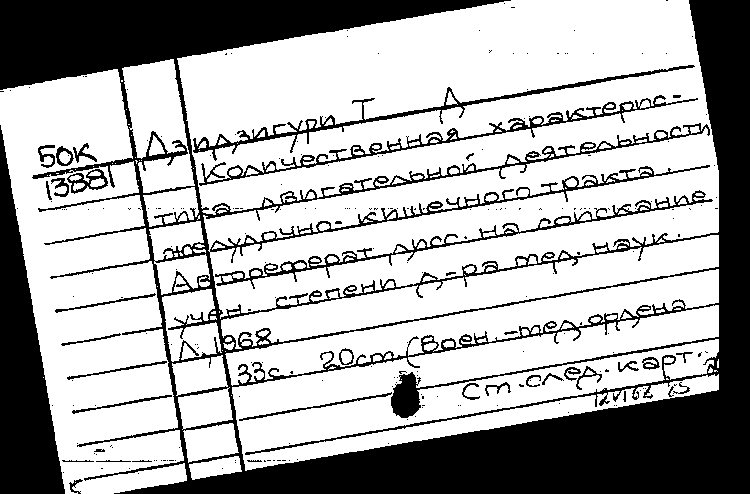 Дзидзигури, Т Д
БОК
13881
Количественная характерис-
тика двигательной деятельности
желудочно-кишечного тракта.
Автореферат дисс. на соискание
учен. степени д-ра мед. наук.
Л., 1968.
33с. 20см. (Воен.-мед. ордена
См. след. карт.